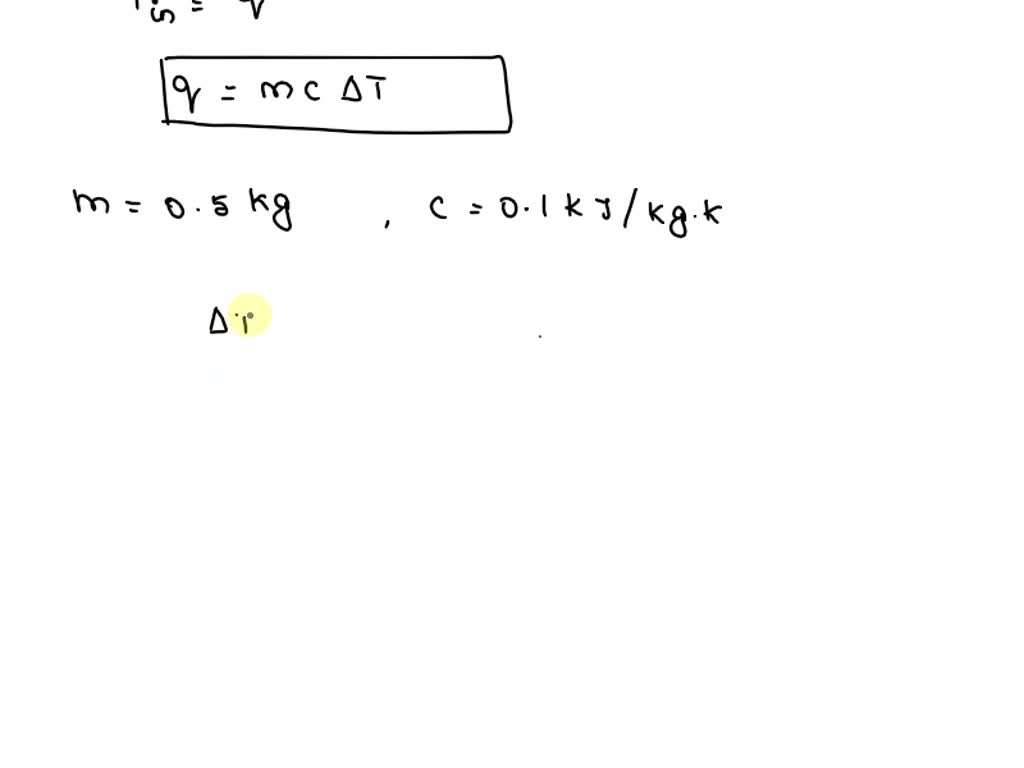 q = mc ΔT
m = 0.5 kg , c = 0.1 kJ/kg.k
ΔT